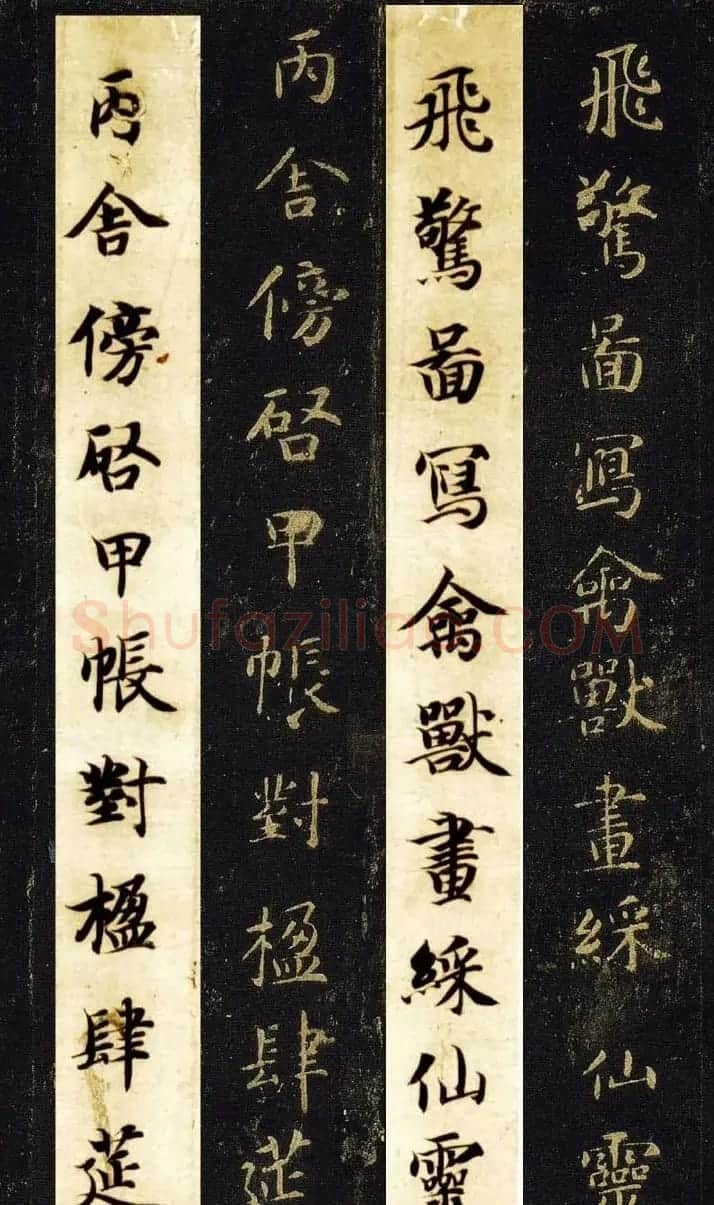 飛驚圖寫禽獸畫綵仙靈
飛驚圖寫禽獸畫綵仙靈
丙舍傍啓甲帳對楹肆筵
丙舍傍啓甲帳對楹肆筵
Shufaziliao.COM